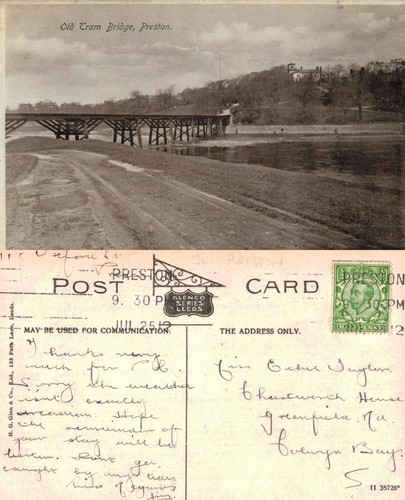 Old Tram Bridge, Preston.
PRESTON
9. 30 PM
JUL 25 12
POST CARD
GLENCO
SERIES
LEEDS
PRESTON
9. 30 PM
MAY BE USED FOR COMMUNICATION.
THE ADDRESS ONLY.
H. G. Glen & Co., Ltd., 133 Park Lane, Leeds.
Thanks very
much for P.C.
Sorry the weather
isn't exactly
Hope
the remainder of
your stay will be
better. Dont get
caught by any
kind regards
Jim.
Miss Ethel Taylor
Chatsworth House
Greenfield Rd.
Colwyn Bay.
11 35728*